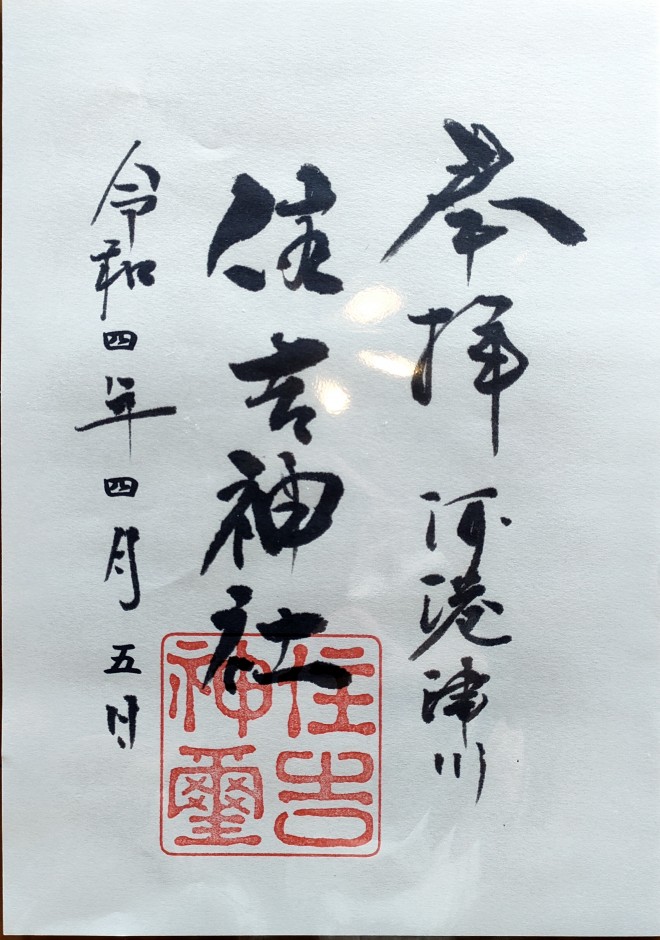 奉拝 河港津川
住吉神社
令和四年四月五日
住吉神璽